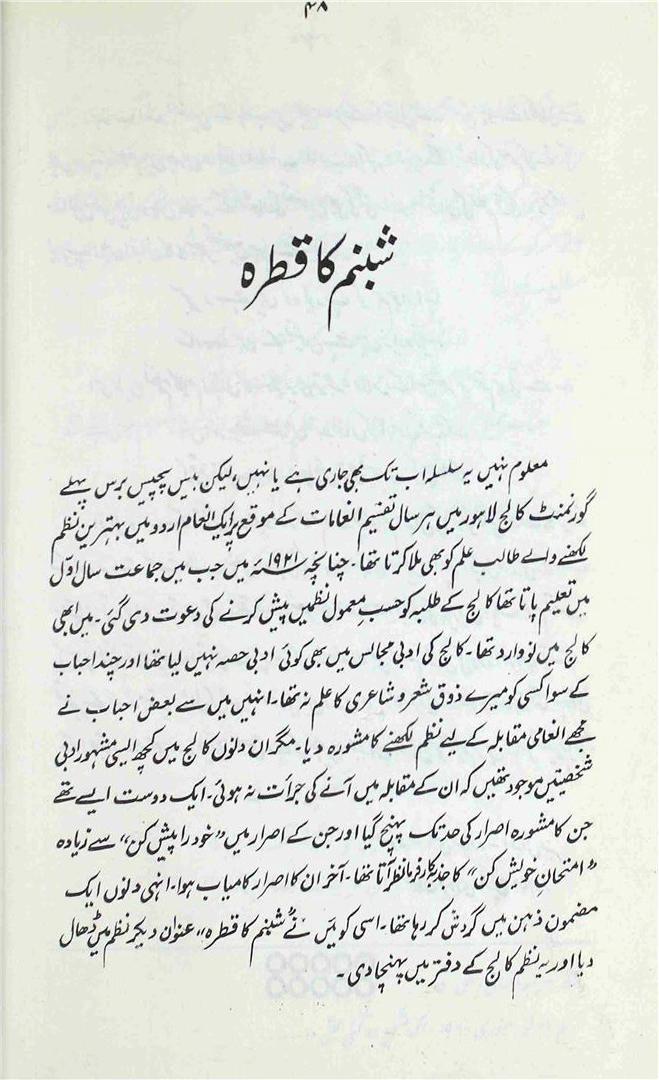 ۴۸
شبنم کا قطرہ
معلوم نہیں یہ سلسلہ اب تک بھی جاری ہے یا نہیں، لیکن بیس پچیس برس پہلے
گورنمنٹ کالج لاہور میں ہر سال تقسیم انعامات کے موقع پر ایک انعام اردو میں بہترین نظم
لکھنے والے طالب علم کو بھی ملا کرتا تھا۔ چنانچہ ۱۹۲۱ء میں جب میں جماعت سال اوّل
میں تعلیم پاتا تھا کالج کے طلبہ کو حسبِ معمول نظمیں پیش کرنے کی دعوت دی گئی۔ میں ابھی
کالج میں نو وارد تھا۔ کالج کی ادبی مجالس میں بھی کوئی ادبی حصہ نہیں لیا تھا اور چند احباب
کے سوا کسی کو میرے ذوق شعر و شاعری کا علم نہ تھا۔ انہیں میں سے بعض احباب نے
مجھے انعامی مقابلہ کے لیے نظم لکھنے کا مشورہ دیا۔ مگر ان دنوں کالج میں کچھ ایسی مشہور ادبی
شخصیتیں موجود تھیں کہ ان کے مقابلہ میں آنے کی جرأت نہ ہوئی۔ ایک دوست ایسے تھے
جن کا مشورہ اصرار کی حد تک پہنچ گیا اور جن کے اصرار میں ”خود را پیش کن“ سے زیادہ
”امتحانِ خویش کن“ کا جذبہ کارفرما نظر آتا تھا۔ آخر ان کا اصرار کامیاب ہوا۔ انہی دنوں ایک
مضمون ذہن میں گردش کر رہا تھا۔ اسی کو میں نے ”شبنم کا قطرہ“ عنوان دیکر نظم میں ڈھال
دیا اور یہ نظم کالج کے دفتر میں پہنچا دی۔